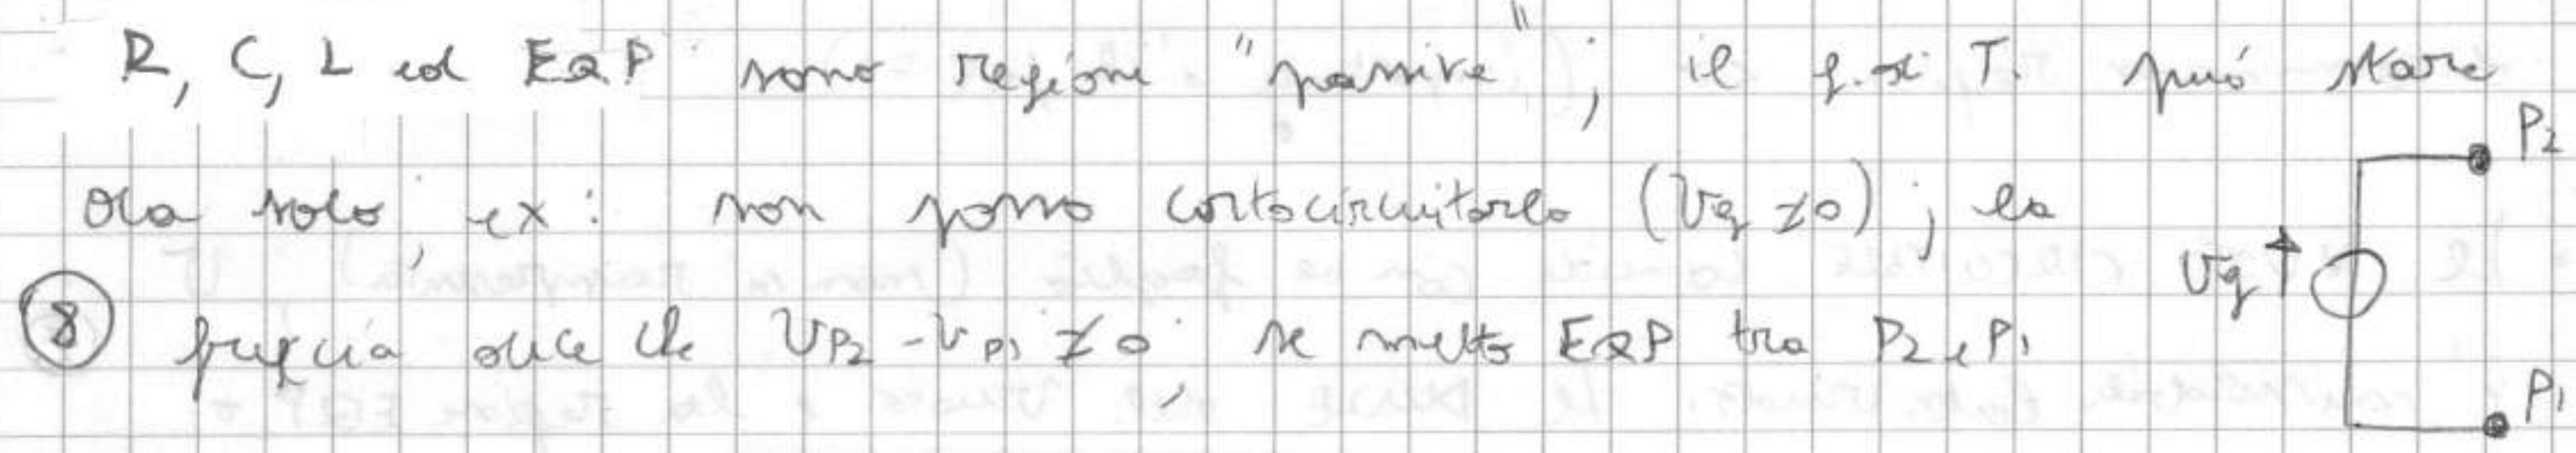 R, C, L ed EQP sono regioni "passive"; il g. di T. può stare
da solo, ex: non posso cortocircuitarlo (Vg ≠0); la
P2
Vg
⑧ freccia dice che VP2 - VP1 ≠ 0, se metto EQP tra P2 e P1
P1